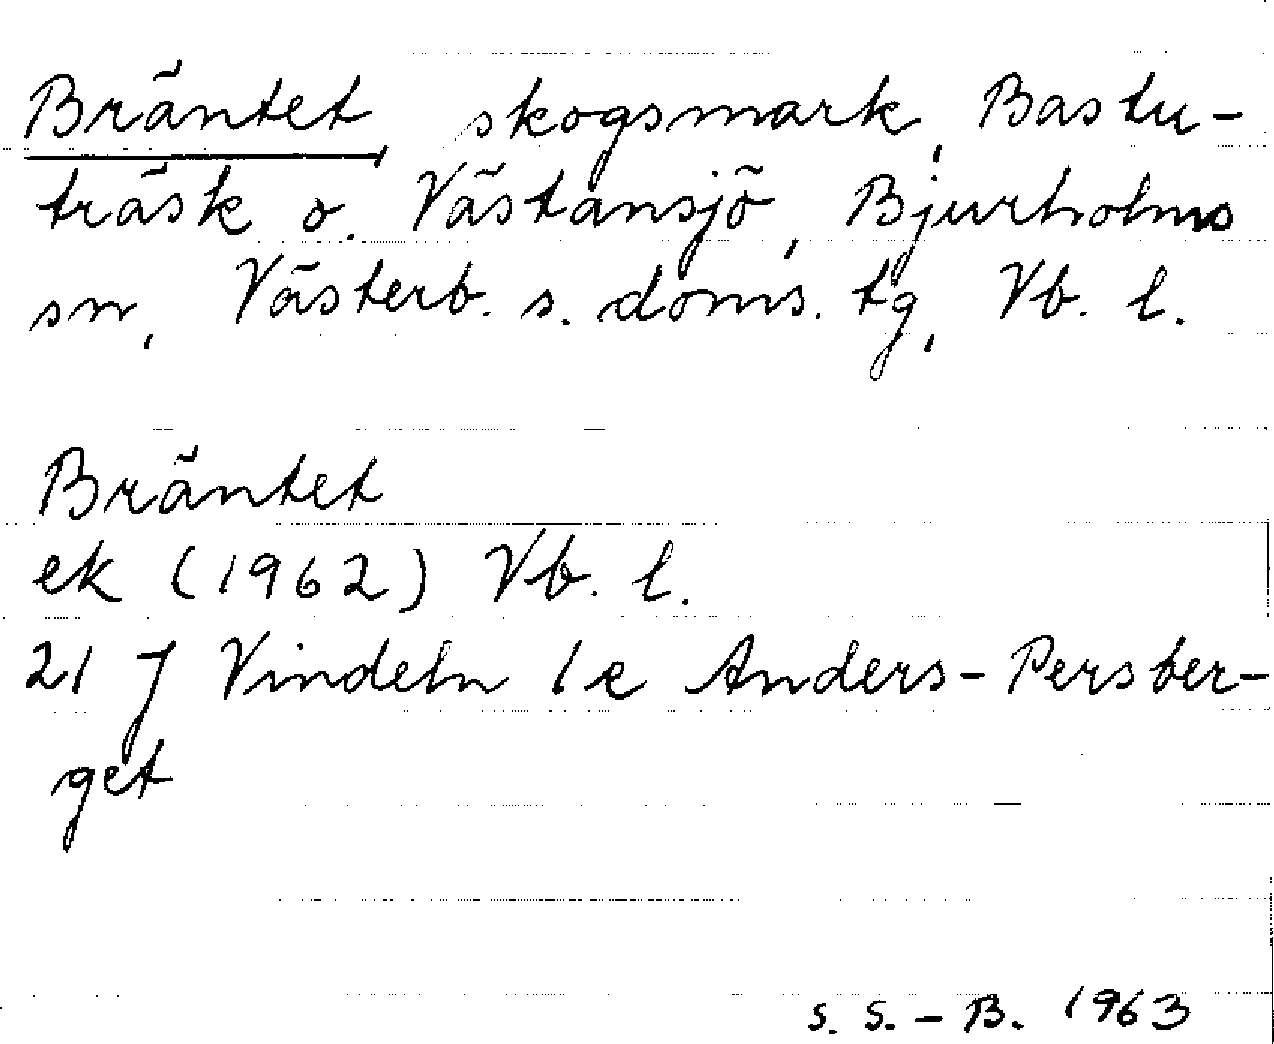 Bräntet, skogsmark, Bastu-
träsk o. Västansjö, Bjurholms
sn, Västerb. s. doms. tg, Vb. l.
Bräntet
ek (1962) Vb. l.
21 J Vindeln 1e Anders-Persber-
get
S. S.-B. 1963